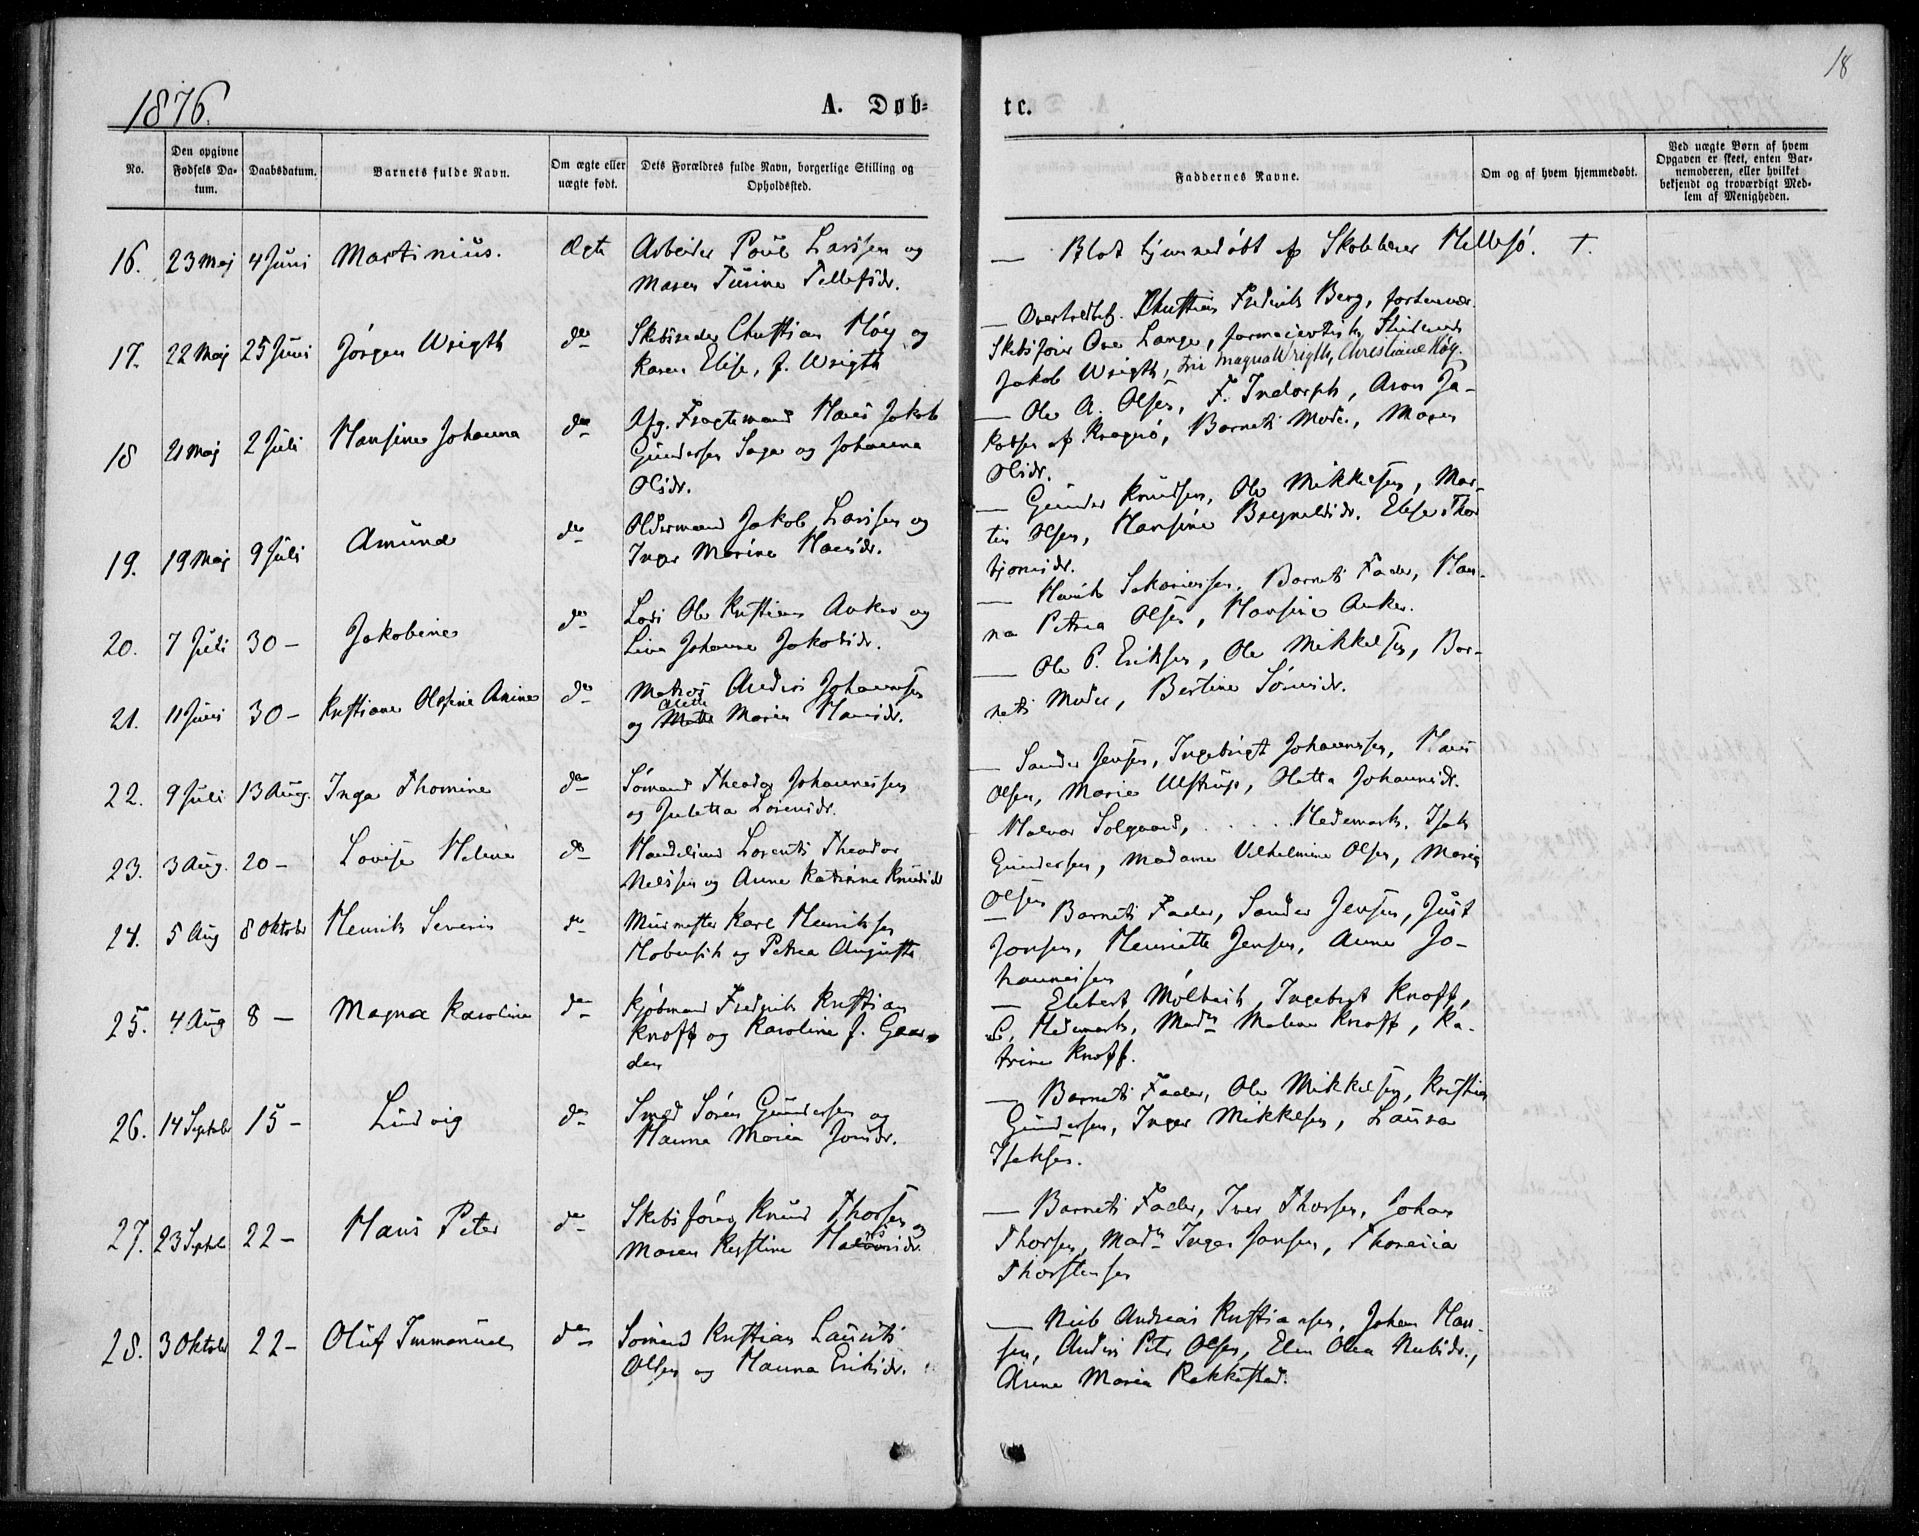 18
1876.
A. Døb-
te.
No.
Den opgivne Fødsels Da-tum.
Daabsdatum.
Barnets fulde Navn.
Om ægte eller uægte født.
Dets Forældres fulde Navn, borgerlige Stilling og Opholdssted.
Faddernes Navne.
Om og af hvem hjemmedøbt.
Ved uægte Børn af hvem Opgaven er skeet, enten Bar-nemoderen, eller hvilket bekjendt og troværdigt Med-lem af Menigheden.
16. 23 Maj 4 Juni Martinius. Ægte Arbeider Poul Larssen og
Maren Turine Tellefsdr.
— Blot hjemmedøbt af Skolelærer Hellesø. +.
17. 22 Maj 25 Juni Jørgen Wrigth do Skibsreder Christian Høy og
Karen Elise, f. Wrigth
— Christian Fredrik Berg,
Skibsfører Ove Lange, Student
Jakob Wrigth, Magna Wrigth, Christiane Høy.
18 21 Maj 2 Juli Hansine Johanna do Afg. Fragtemand Hans Jakob
Gundersen Saga og Johanna
Olsdr.
— Ole A. Olsen, F. Indorph, Aron Ja-
kobsen af Kragerø, Barnets Moder, Maren
Olsdr.
19. 19 Maj 9 Juli Amund do Oldermand Jakob Larssen og
Inger Marine Hansdr.
— Gunder Knudsen, Ole Mikkelsen, Mar-
tin Olsen, Hansine Brynildsdr. Elise Thor
bjornsdr.
20. 7 Juli 30 — Jakobine do Lods Ole Kristian Anker og
Lina Johanne Jakobsdr.
— Henrik Sakariassen, Barnets Fader, Han-
na Petrea Olsen, Hansine Anker.
21. 11 Juni 30 — Kristiane Olefine Anine do Matros Anders Johannsen
og Alette Maria Hansdr.
— Ole P. Eriksen, Ole Mikkelsen, Bar-
nets Moder, Bertine Sørensdr.
22. 9 Juli 13 Aug. Inga Thomine do Sømand Theodor Johannessen
og Juletta Lorensdr.
— Sander Jensen, Ingebrigt Johannssen, Hans
Olsen, Marie Ulstrup, Oletta Johannsdr.
23. 3 Aug. 20 — Lovise Helene do Handelsmd Lorents Theodor
Nelssen og Anne Katrine Knudsdr
Halvor Solgaard, . . . . Hedemark, Isak
Gundersen, Madame Vilhelmine Olsen, Maria
Olsen
24. 5 Aug 8 Oktobr Henrik Severin do Murmester Karl Henriksen
Hobersik og Petrea Augusta
— Barnets Fader, Sander Jensen, Just
Jonsen, Henriette Jensen, Anne Jo-
hannesen
25. 4 Aug 8 — Magna Karoline do Kjøbmand Fredrik Kristian
Knoff og Karoline f. Gaar-
der
— Ebbert Mølbach, Ingebrgt Knoff,
C. Hedemark, Madm Malene Knoff, Ka-
trine Knoff.
26. 14 Septebr 15 — Ludvig do Smed Søren Gundersen og
Hanna Maria Jonsdr.
— Barnets Fader, Ole Mikkelsen, Kristian
Gundersen, Inger Mikkelsen, Laura
Isaksen.
27. 23 Septbr 22 — Hans Peter do Skibsfører Knud Thorsen og
Maren Kirstine
— Barnets Fader, Iver Thorsen, Johan
Thorsen, Madm Inger Jansen, Thonesia
Thorstensen
28. 3 Oktobr 22 — Oluf Immanuel do Sømand Kristian Laurits
Olsen og Hanna Eriksdr.
— Niels Andreas Kristiansen, Johan Han-
sen, Anders Peter Olsen, Elen Olea Nielsdr.,
Anne Maria Rakkestad.